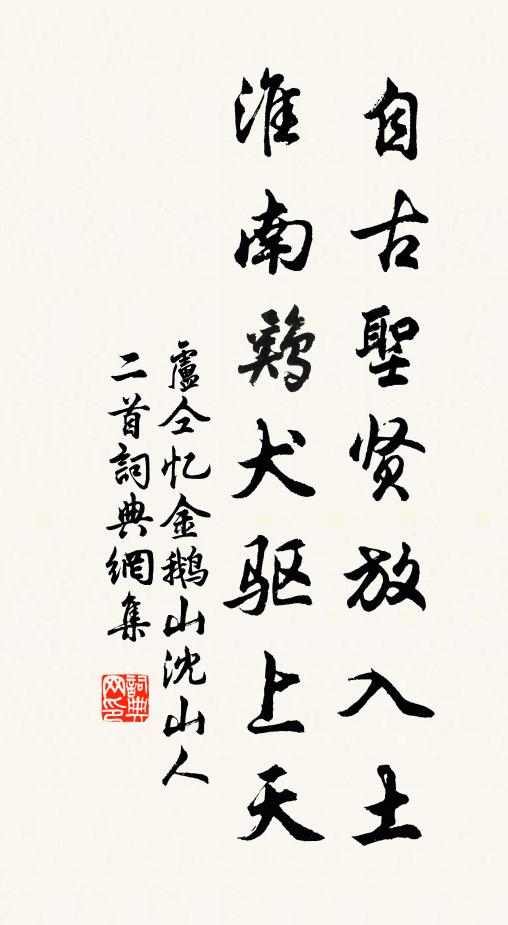 自古聖贤放入土
淮南鷄犬驱上天
盧仝忆金鹅山沈山人
二首詞典網集
詞典
网印